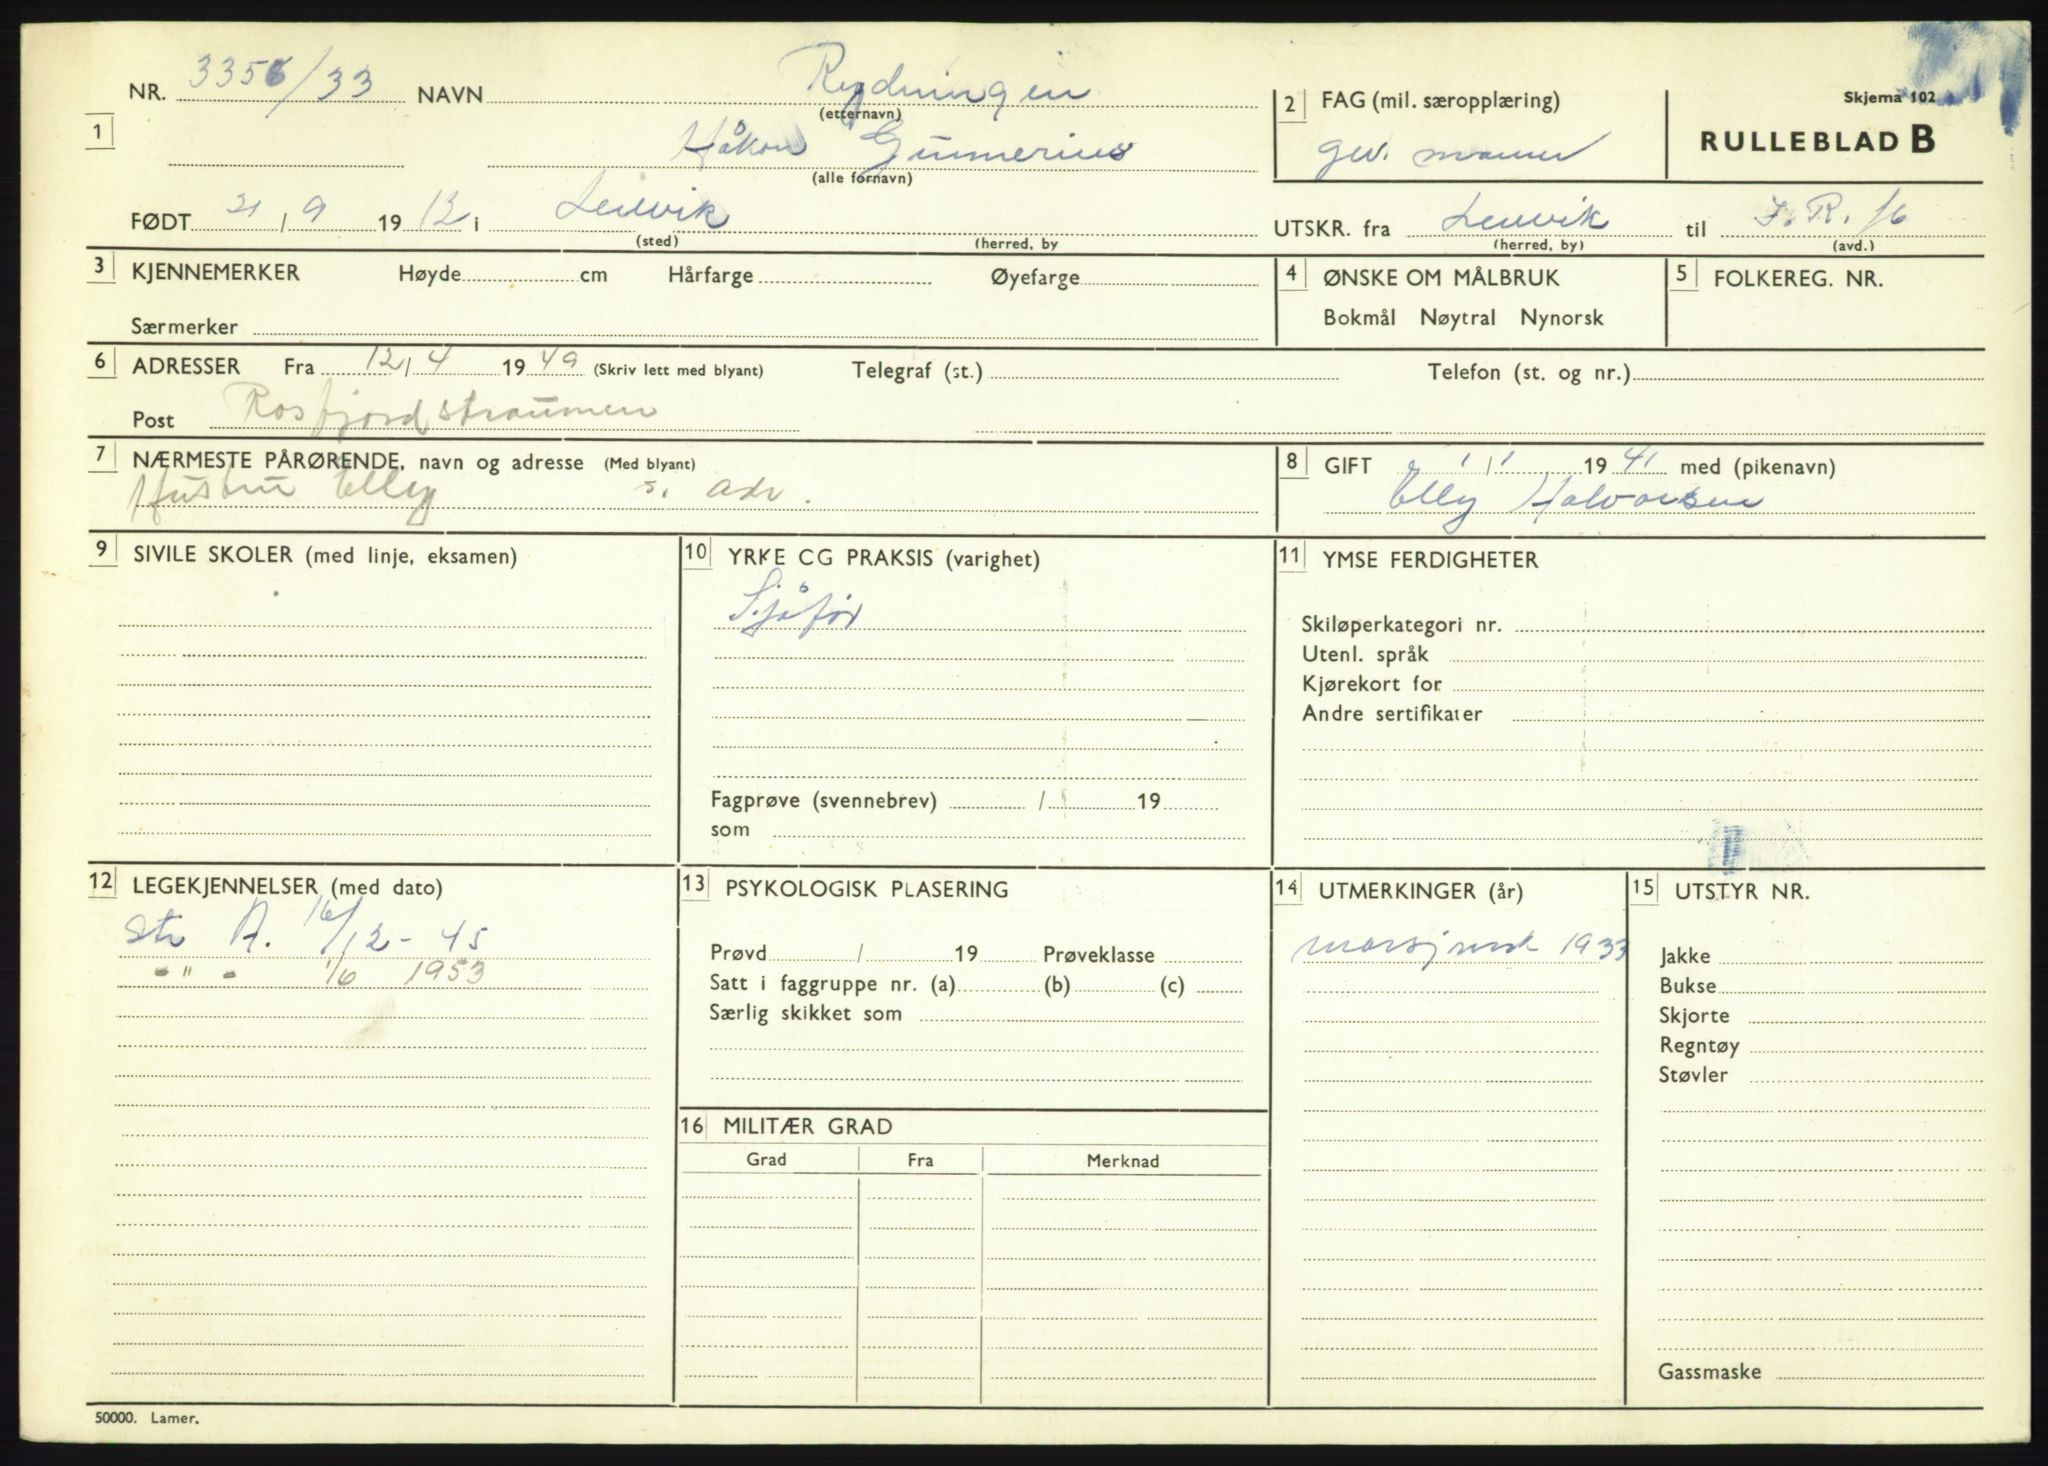 NR. 3356/33 NAVN Rydningen
(etternavn)
1 Håkon Gunnerius
(alle fornavn)
2 FAG (mil. særopplæring)
gev. mann
Skjema 102
RULLEBLAD B
FØDT 21/9 1912 i Lenvik
(sted) (herred, by
UTSKR. fra Lenvik til I.R. 16
(herred, by) (avd.)
3 KJENNEMERKER Høyde cm Hårfarge Øyefarge
Særmerker
4 ØNSKE OM MÅLBRUK
Bokmål Nøytral Nynorsk
5 FOLKEREG. NR.
6 ADRESSER Fra 12/4 1949 (Skriv lett med blyant) Telegraf (st.) Telefon (st. og nr.)
Post Rosfjordstraumen
7 NÆRMESTE PÅRØRENDE, navn og adresse (Med blyant)
Hustru Elly s. adr.
8 GIFT 1/1 1941 med (pikenavn)
Elly Halvorsen
9 SIVILE SKOLER (med linje, eksamen)
10 YRKE OG PRAKSIS (varighet)
Sjåfør
Fagprøve (svennebrev) / 19
som
11 YMSE FERDIGHETER
Skiløperkategori nr.
Utenl. språk
Kjørekort for
Andre sertifikater
12 LEGEKJENNELSER (med dato)
Str A. 16/12-45
- " - 1/6 1953
13 PSYKOLOGISK PLASERING
Prøvd / 19 Prøveklasse
Satt i faggruppe nr. (a) (b) (c)
Særlig skikket som
14 UTMERKINGER (år)
marsjmrk 1933
15 UTSTYR NR.
Jakke
Bukse
Skjorte
Regntøy
Støvler
Gassmaske
16 MILITÆR GRAD
Grad Fra Merknad
50000. Lamer.